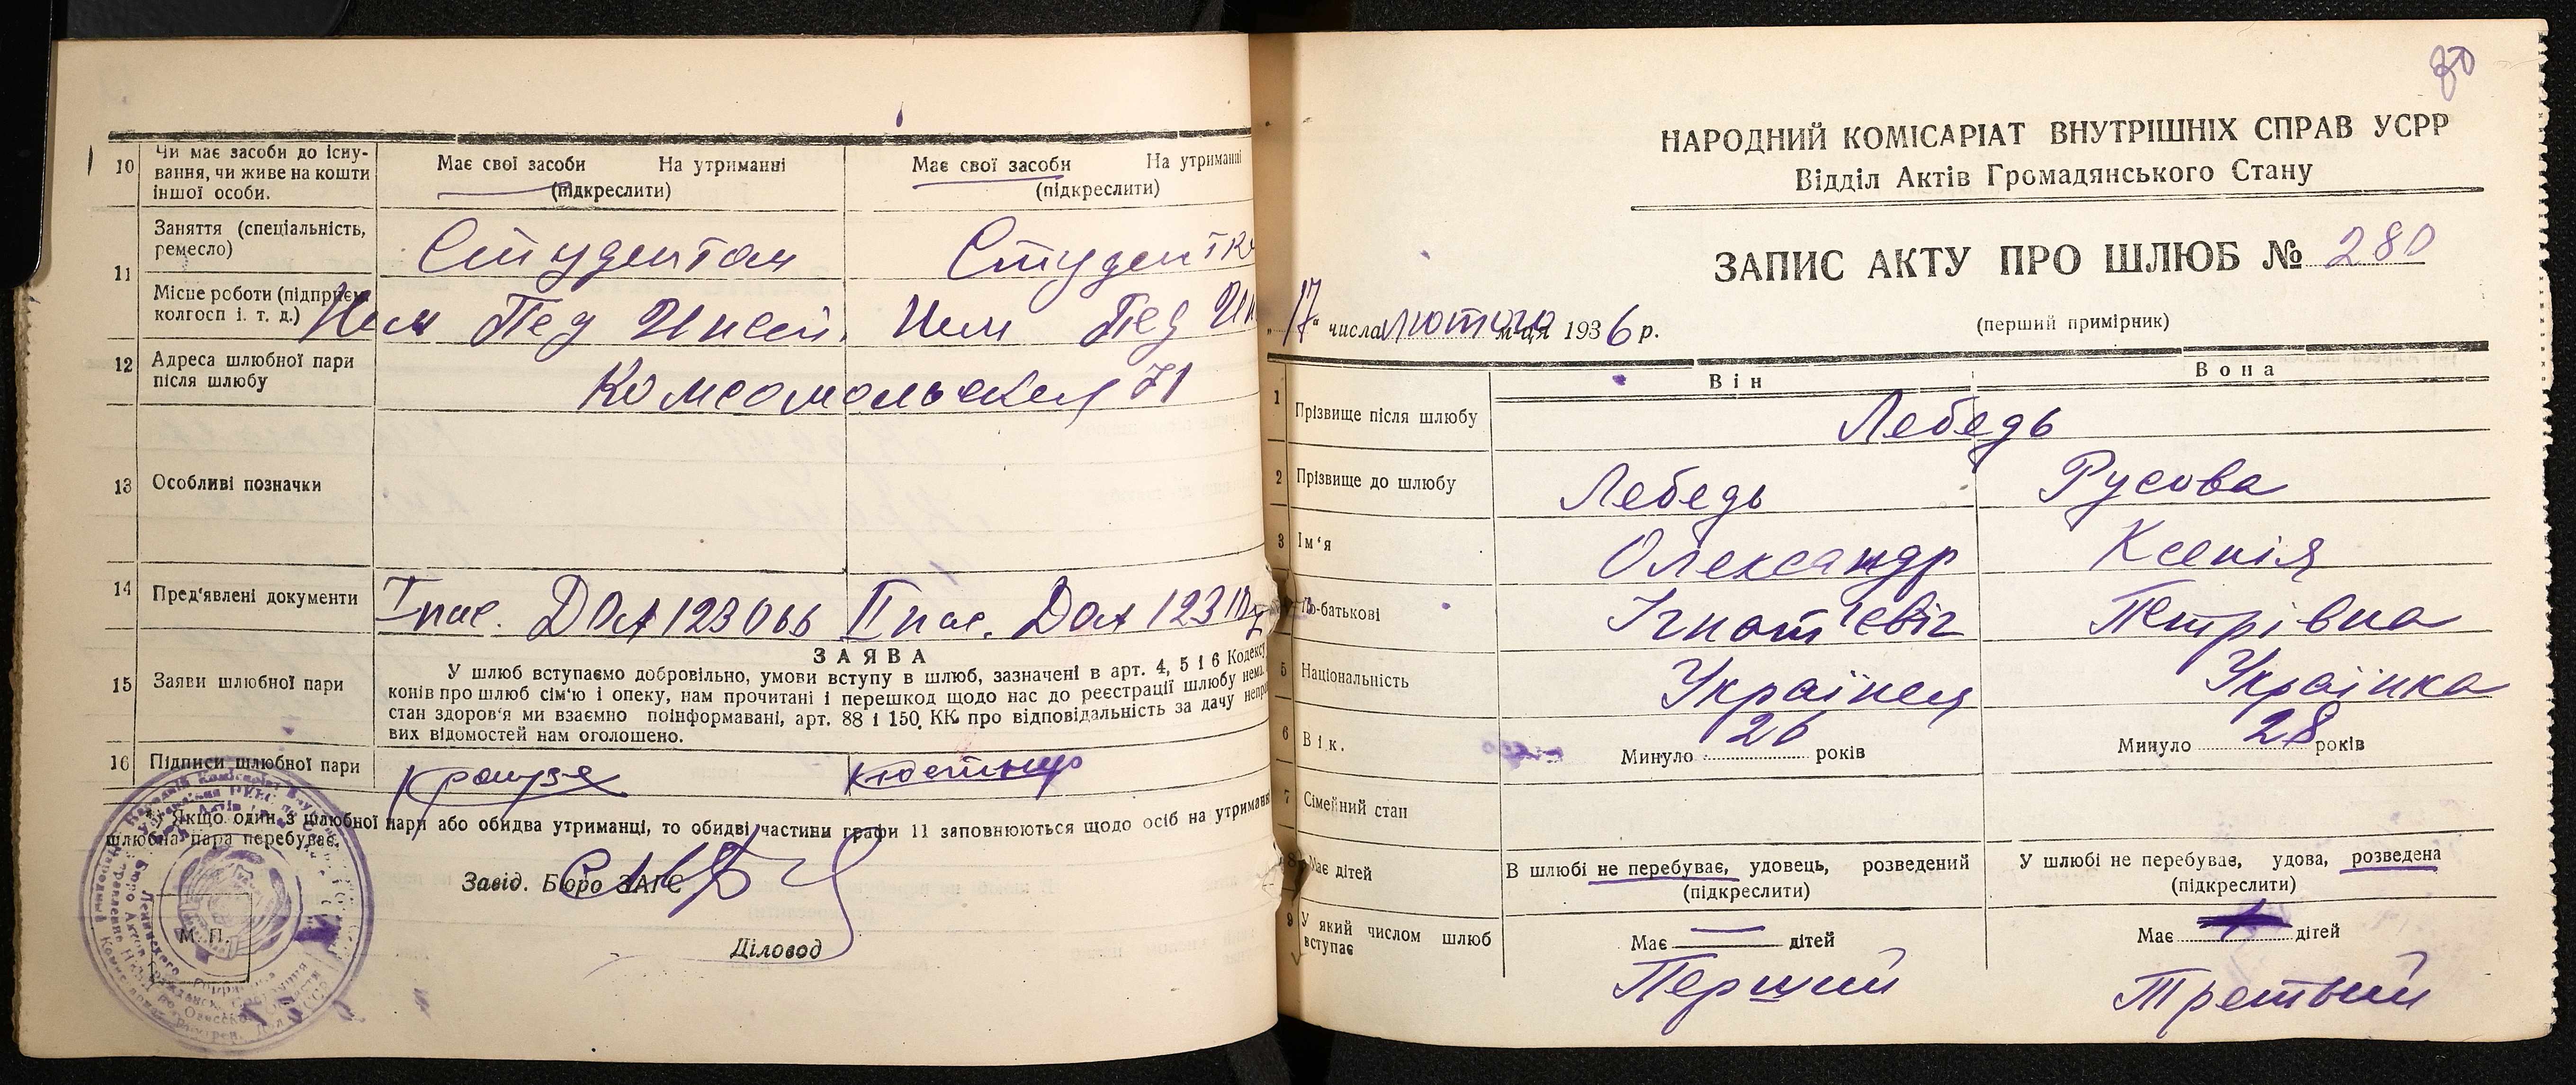 10 Чи має засоби до існу-
вання, чи живе на кошти
іншої особи.
Має свої засоби На утриманні
(підкреслити)
Має свої засоби На утриманні
(підкреслити)
11 Заняття (спеціальність,
ремесло)
Студентом
Студентк
Місце роботи (підприєм.
колгосп і. т. д.)
Нем Пед Инст.
Нем Пед Ин
12 Адреса шлюбної пари
після шлюбу
Комсомольская 71
13 Особливі позначки
14 Пред'явлені документи
I пас. ДОА 123066
II пас. ДОА 1231
15 Заяви шлюбної пари
ЗАЯВА
У шлюб вступаємо добровільно, умови вступу в шлюб, зазначені в арт. 4, 5 і 6 Кодексу
конів про шлюб сім'ю і опеку, нам прочитані і перешкод щодо нас до реєстрації шлюбу нема.
стан здоров'я ми взаємно поінформавані, арт. 88 і 150 КК про відповідальність за дачу непра
вих відомостей нам оголошено.
16 Підписи шлюбної пари
* Якщо один з шлюбної пари або обидва утриманці, то обидві частини графи 11 заповнюються щодо осіб на утриманн
шлюбна пара перебуває.
Завід. Бюро ЗАГС
М. П.
Діловод
80
НАРОДНИЙ КОМІСАРІАТ ВНУТРІШНІХ СПРАВ УСРР
Відділ Актів Громадянського Стану
ЗАПИС АКТУ ПРО ШЛЮБ № 280
„17" числа лютого м-ця 1936 р.
(перший примірник)
Він Вона
1 Прізвище після шлюбу Лебедь
2 Прізвище до шлюбу Лебедь Русова
3 Ім'я Олександр Ксенія
По-батькові Ігнат'евіч Петрівна
5 Національність Українец Українка
6 Вік. Минуло 26 років Минуло 28 років
7 Сімейний стан
В шлюбі не перебуває, удовець, розведений
(підкреслити)
У шлюбі не перебуває, удова, розведена
(підкреслити)
8 Має дітей
Має — дітей
Має дітей
9 У який числом шлюб
вступає
Перший
Третьий